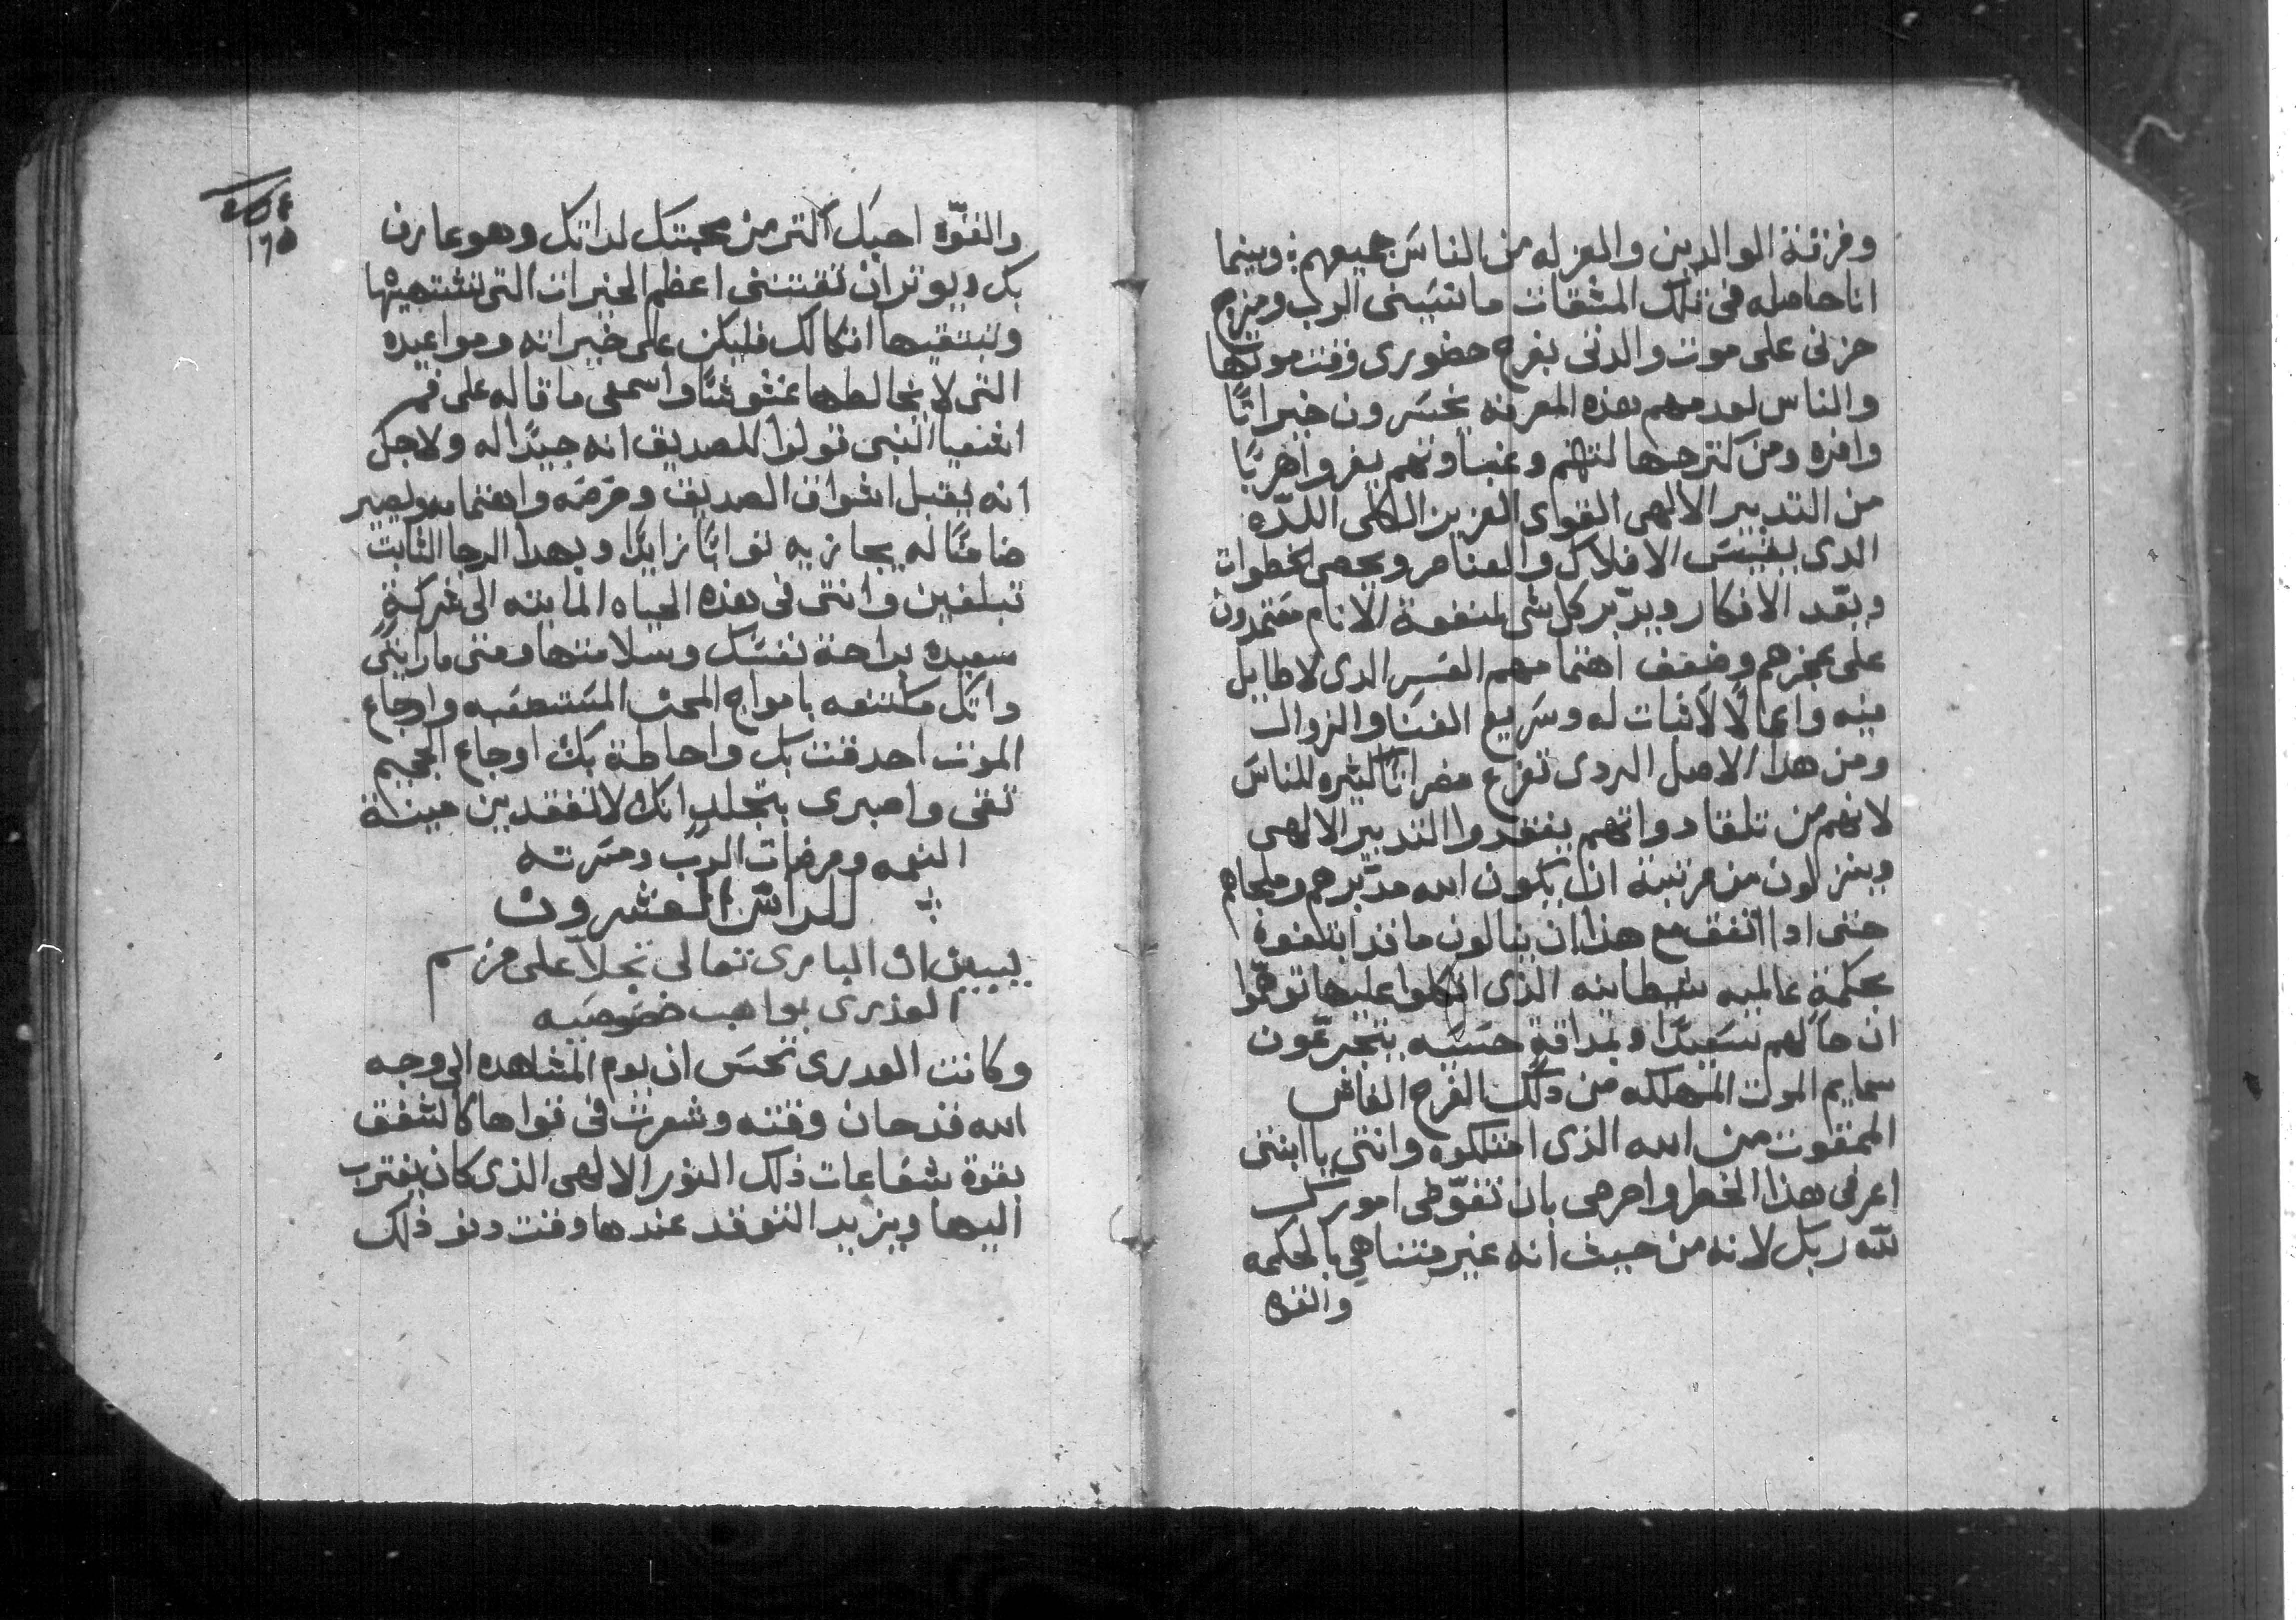 وفرقة الوالدين والعزله من الناسَ جميعهم؛ وبينما
انا حاصله فى تلك المشقات ما نسَينى الرب ومزج
حزنى على موت والدتى بفرح حضورى وقت موتها
والناس لعدمهم هذه المعرفه يخسَرون خيراتًا
وافره ومن كثر جهالتهم وغباوتهم يفروا هربًا
من التدبير الالهى القوى العزيز الكلى اللدّه
الدى يقيسَ الافلاك والعناصر ويحصى الخطوات
ويعّد الافكار ويدّبر كل شى لمنفعة الانام معتمدون
على عجزهم وضعف اهتمامهم العسَر الدى لا طايل
منه وايمًا لا لاثبات له وسَريع الفنَا والزوال
ومن هدا الاصل الردى تفرع مضراتًا كثيره للناسَ
لانهم من تلقا دواتهم يفقدوا التدبير الالهى
وينزلون من مرتبة ان يكون الله مدّبرهم وملجاهم
حتى ادا اتفق مع هذا ان ينالون ما قد ابتغوه
بحكمةٍ عالميه شيطانيه الذى اتكلوا عليها توهّموا
ان حالهم سَعيدًا وبمداقةٍ حسَيه يتجرعّون
سمايم الموت المهلكه من دلك الفرح الفاش
الممقوت من الله الذى امتلكوه وانتى يا ابنتى
اعرفى هذا الخطر واحرصى بان تفوّضى امورك
للّه ربك لانه من حيث انه غير متناهى بالحكمه
والقوه
١٦٥
والقوّه احبك اكثر من محبتك لداتك وهو عارف
بك ويوثر ان تقتنى اعظم الخيرات التى تشتهيها
وتبتغيها اتكالك فليكن على خيراته ومواعيده
التى لا يخالطها غشوشًا واسمعى ما قاله على فم
اشعيا النبى قولوا للصديق انه جيدًا له ولاجل
انه يقبل اشواق الصديق وحرصَه واهتمامه ويصير
ضامنًا له يجازيه ثوابًا زايدًا وبهدا الرجا الثابت
تبلغين وانتى فى هذه الحياه المايته الى شركةٍ
سعيده براحة نفسَك وسلامتها ومتى ما رايتى
داتك مكتنفه بامواج المحن المسَتصعَبه واوجاع
الموت احدقت بك واحاطة بك اوجاع الجحيم
ثقى واصبرى بتجلدٍ انك لا تفقدين مينة
النعمه ومرضات الرب ومسَرته
؛ الراسَ العشرون
يبين ان البارى تعالى تجلا على مريم
العذرى بمواهب خصَوصَيه
وكانت العدرى تحسَ ان يوم المشاهده الى وجه
الله قد حان وقته وشعرت فى قواها كالشفق
بقوة شعَاعات ذلك النور الالهى الذى كان يقترب
اليها ويزيد التوقد عندها وقت دنو ذلك